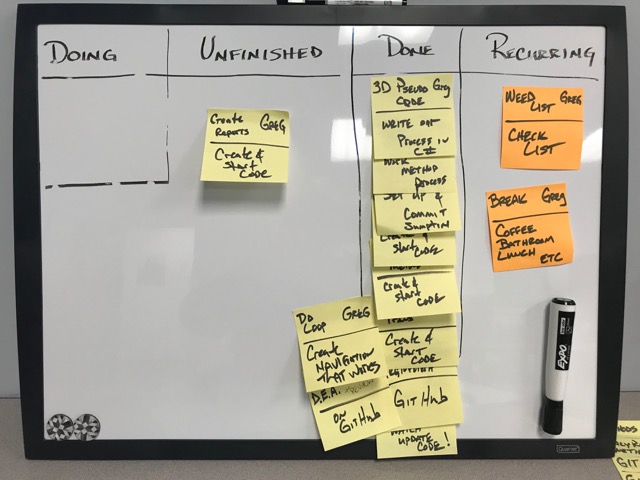 DOING
UNFINISHED
DONE
RECURRING
Create GREG
Reports
Create &
Start
CODE
3D PSEUDO Greg
CODE
WRITE OUT
PROCESS IN
C#
METHOD
PROCESS
SET UP &
COMMIT
Start
CODE
Create &
Start
CODE
Create &
Start
CODE
GitHub
UPDATE
CODE!
DO GREG
LOOP
Create
NAVIGATION
THAT WORKS
D.E.A.
ON
GitHub
WEED GREG
LIST
CHECK
LIST
BREAK Greg
COFFEE
BATHROOM
LUNCH ETC
EXPO
Quartet
GIT